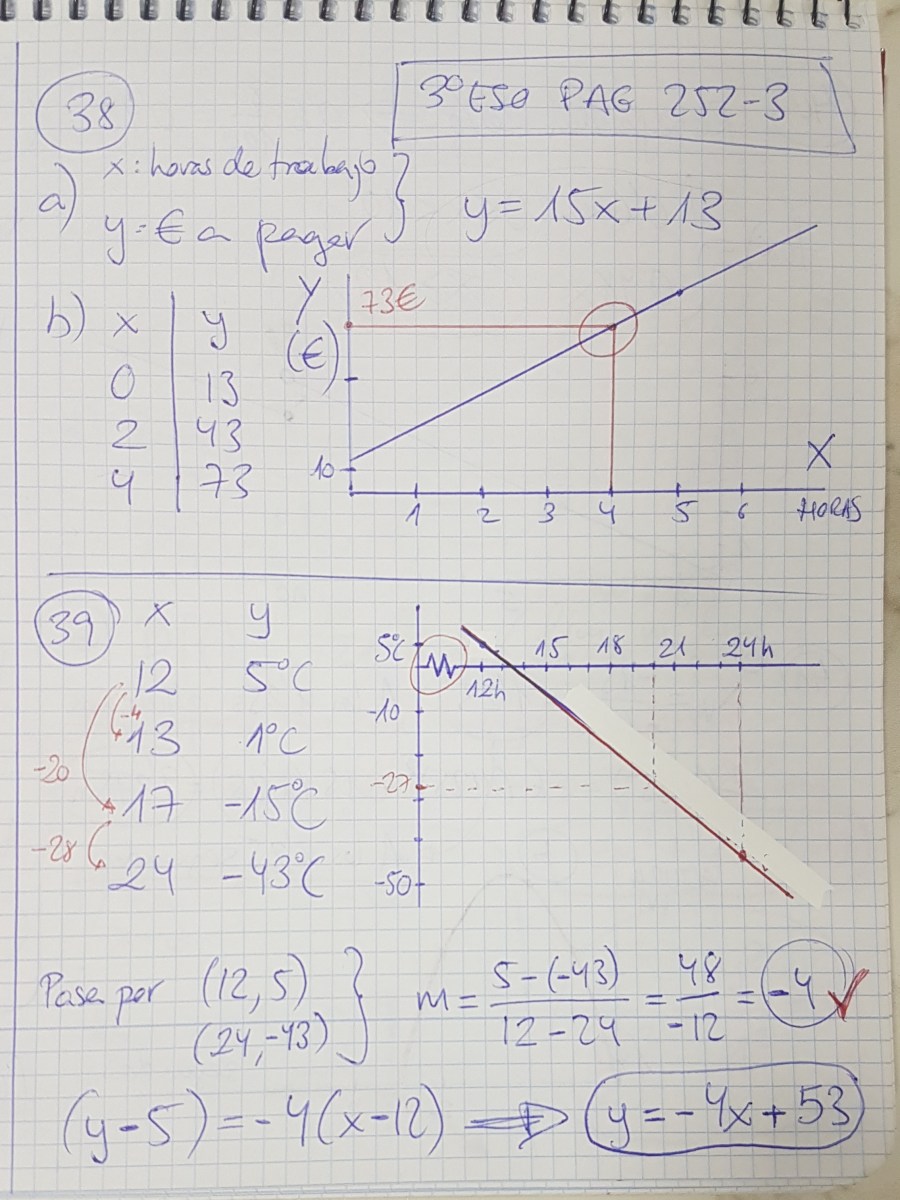 38
3º ESO PAG 252-3
a) x: horas de trabajo
y = € a pagar
} y = 15x + 13
b) x | y
0 | 13
2 | 43
4 | 73
Y
(€)
73€
10
1 2 3 4 5 6
X
HORAS
39
x y
12 5°C
13 1°C
17 -15°C
24 -43°C
-4
-20
-28
5°C
12h 15 18 21 24h
-10
-27
-50
Pasa por (12,5)
(24,-43)
} m = 5-(-43) / 12-24 = 48 / -12 = -4 ✓
(y-5) = -4(x-12) ⟹ y = -4x + 53